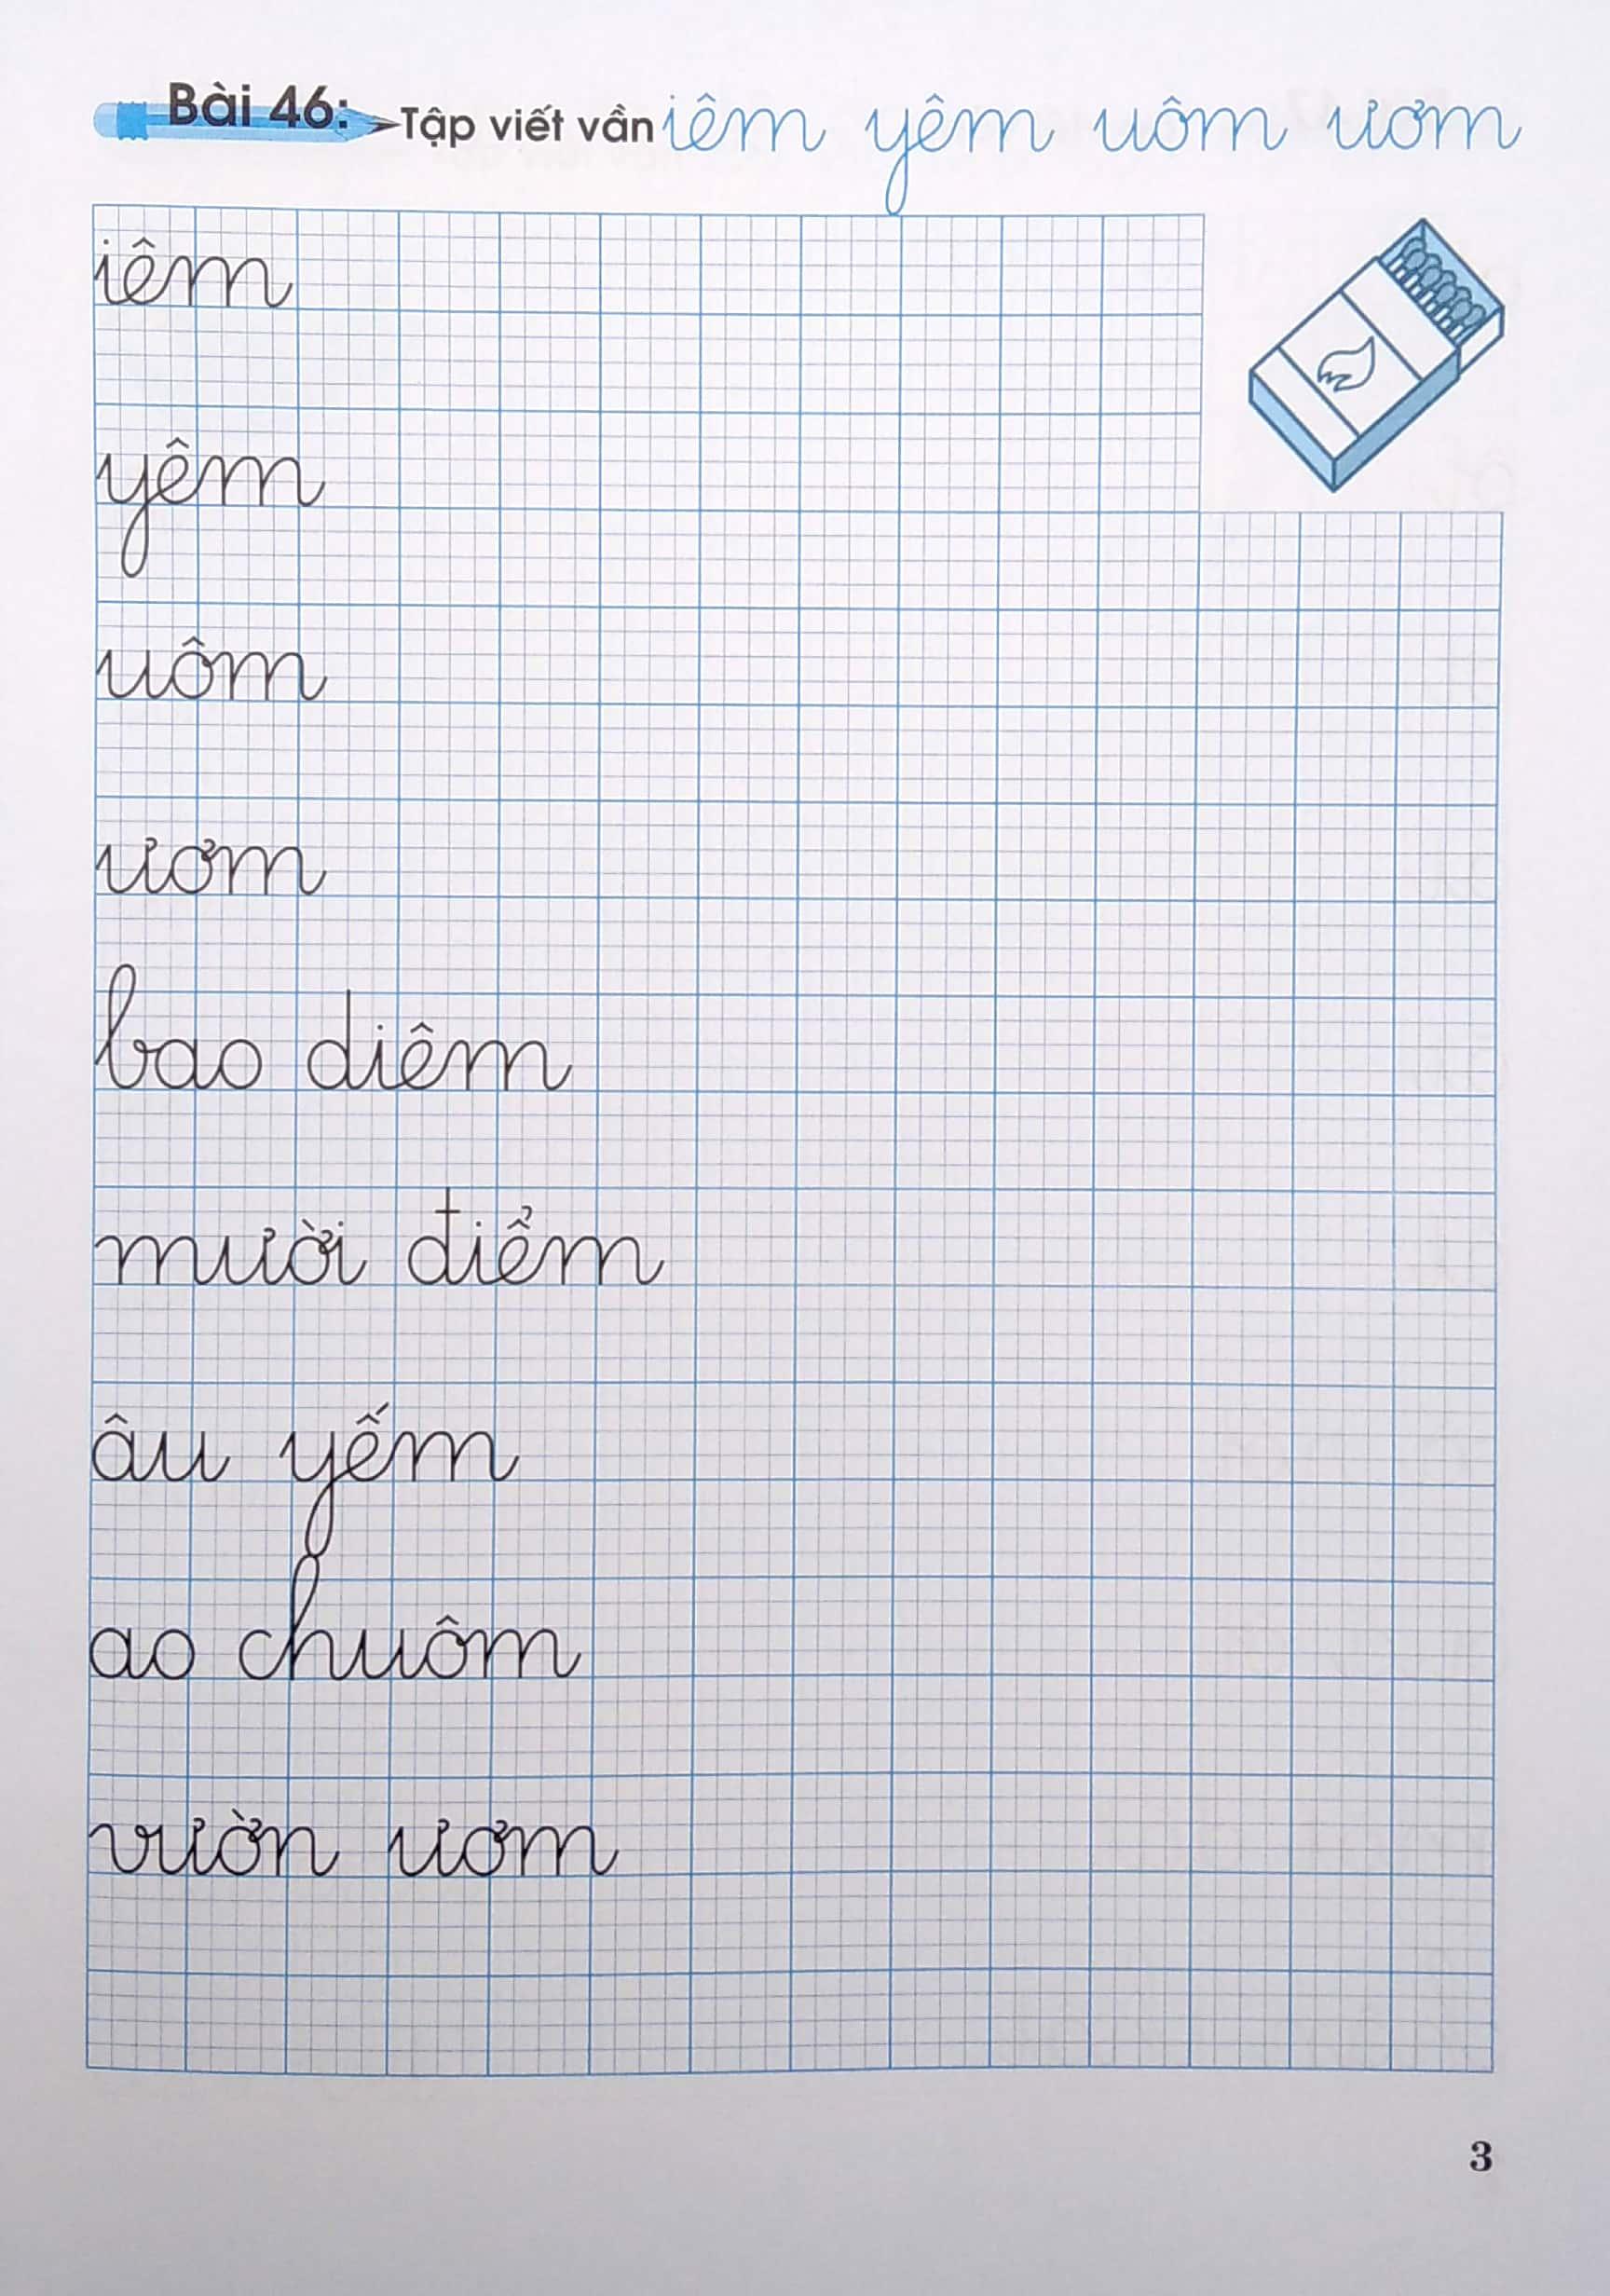 Bài 46: Tập viết vần iêm yêm uôm ươm
iêm
yêm
uôm
ươm
bao diêm
mười điểm
âu yếm
ao chuôm
vườn ươm
3